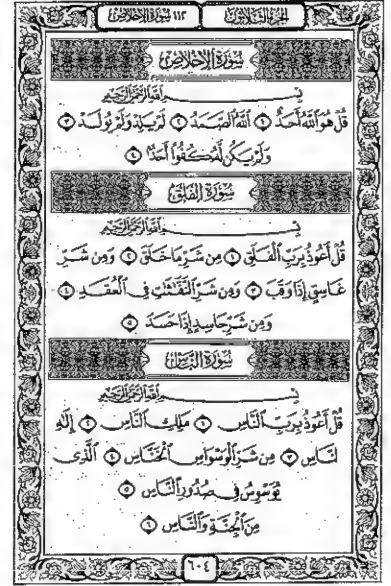 الجزء الثلاثون
١١٢ سورة الإخلاص
سُورَةُ الإِخْلَاصِ
بِسْمِ ٱللَّهِ ٱلرَّحْمَٰنِ ٱلرَّحِيمِ
قُلْ هُوَ ٱللَّهُ أَحَدٌ ١ ٱللَّهُ ٱلصَّمَدُ ٢ لَمْ يَلِدْ وَلَمْ يُولَدْ ٣
وَلَمْ يَكُن لَّهُۥ كُفُوًا أَحَدٌ ٤
سُورَةُ الفَلَقِ
بِسْمِ ٱللَّهِ ٱلرَّحْمَٰنِ ٱلرَّحِيمِ
قُلْ أَعُوذُ بِرَبِّ ٱلْفَلَقِ ١ مِن شَرِّ مَا خَلَقَ ٢ وَمِن شَرِّ
غَاسِقٍ إِذَا وَقَبَ ٣ وَمِن شَرِّ ٱلنَّفَّٰثَٰتِ فِي ٱلْعُقَدِ ٤
وَمِن شَرِّ حَاسِدٍ إِذَا حَسَدَ ٥
سُورَةُ النَّاسِ
بِسْمِ ٱللَّهِ ٱلرَّحْمَٰنِ ٱلرَّحِيمِ
قُلْ أَعُوذُ بِرَبِّ ٱلنَّاسِ ١ مَلِكِ ٱلنَّاسِ ٢ إِلَٰهِ
ٱلنَّاسِ ٣ مِن شَرِّ ٱلْوَسْوَاسِ ٱلْخَنَّاسِ ٤ ٱلَّذِي
يُوَسْوِسُ فِي صُدُورِ ٱلنَّاسِ ٥
مِنَ ٱلْجِنَّةِ وَٱلنَّاسِ ٦
٦٠٤